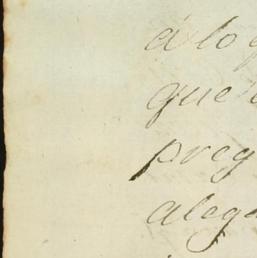 á lo q
que
preg
alega